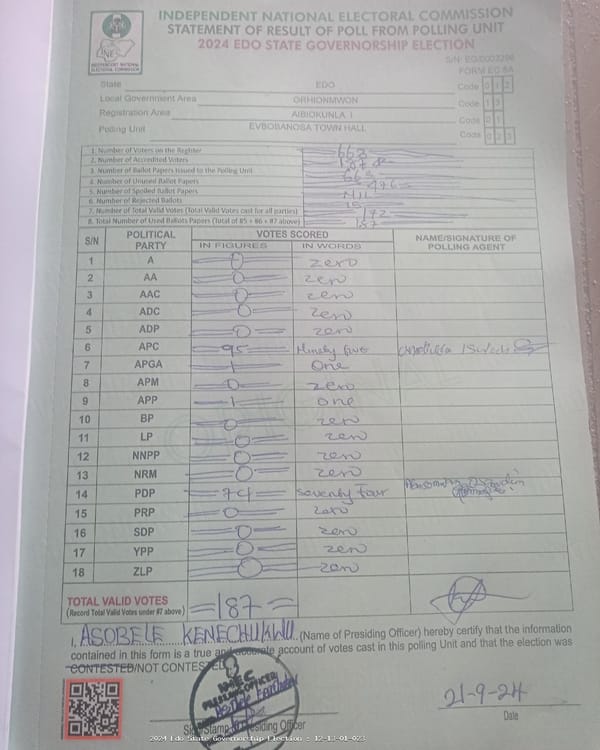 INDEPENDENT NATIONAL ELECTORAL COMMISSION
STATEMENT OF RESULT OF POLL FROM POLLING UNIT
2024 EDO STATE GOVERNORSHIP ELECTION
FORM EC 8A
State EDO Code 0 1 2
Local Government Area ORHIONMWON Code 1 3
Registration Area AIBIOKUNLA I Code 0 1
Polling Unit EVBOBANOSA TOWN HALL Code 0 2 3
1. Number of Voters on the Register 663
2. Number of Accredited Voters 187
3. Number of Ballot Papers Issued to the Polling Unit 663
4. Number of Unused Ballot Papers 476
5. Number of Spoiled Ballot Papers Nil
6. Number of Rejected Ballots 15
7. Number of Total Valid Votes (Total Valid Votes cast for all parties) 172
8. Total Number of Used Ballots Papers (Total of #5 + #6 + #7 above) 187
S/N POLITICAL PARTY VOTES SCORED NAME/SIGNATURE OF POLLING AGENT
IN FIGURES IN WORDS
1 A 0 zero
2 AA 0 zero
3 AAC 0 zero
4 ADC 0 zero
5 ADP 0 zero
6 APC 95 Ninety five
7 APGA 1 One
8 APM 0 zero
9 APP 1 one
10 BP 0 zero
11 LP 0 zero
12 NNPP 0 zero
13 NRM 0 zero
14 PDP 74 Seventy four
15 PRP 0 zero
16 SDP 0 zero
17 YPP 0 zero
18 ZLP 0 zero
TOTAL VALID VOTES =187=
(Record Total Valid Votes under #7 above)
I, ASOBELE KENECHUKWU (Name of Presiding Officer) hereby certify that the information
contained in this form is a true and accurate account of votes cast in this polling Unit and that the election was
CONTESTED/NOT CONTESTED
INEC
PRESIDING OFFICER
21-9-24
Presiding Officer
Date
2024 Edo State Governorship Election : 12-13-01-023